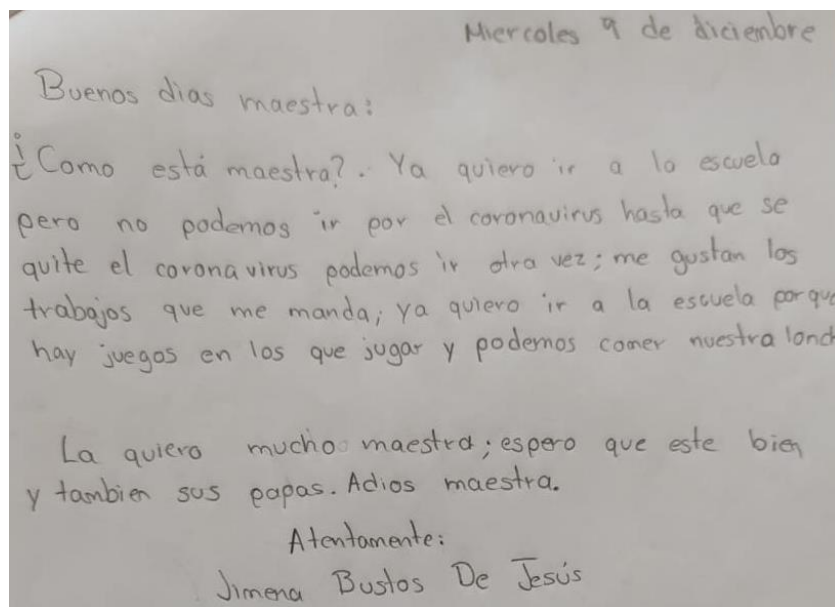 Miercoles 9 de diciembre
Buenos dias maestra:
¿Como está maestra?. Ya quiero ir a la escuela
pero no podemos ir por el coronavirus hasta que se
quite el coronavirus podemos ir otra vez; me gustan los
trabajos que me manda; ya quiero ir a la escuela porque
hay juegos en los que jugar y podemos comer nuestra lonch
La quiero mucho maestra; espero que este bien
y tambien sus papas. Adios maestra.
Atentamente:
Jimena Bustos De Jesús